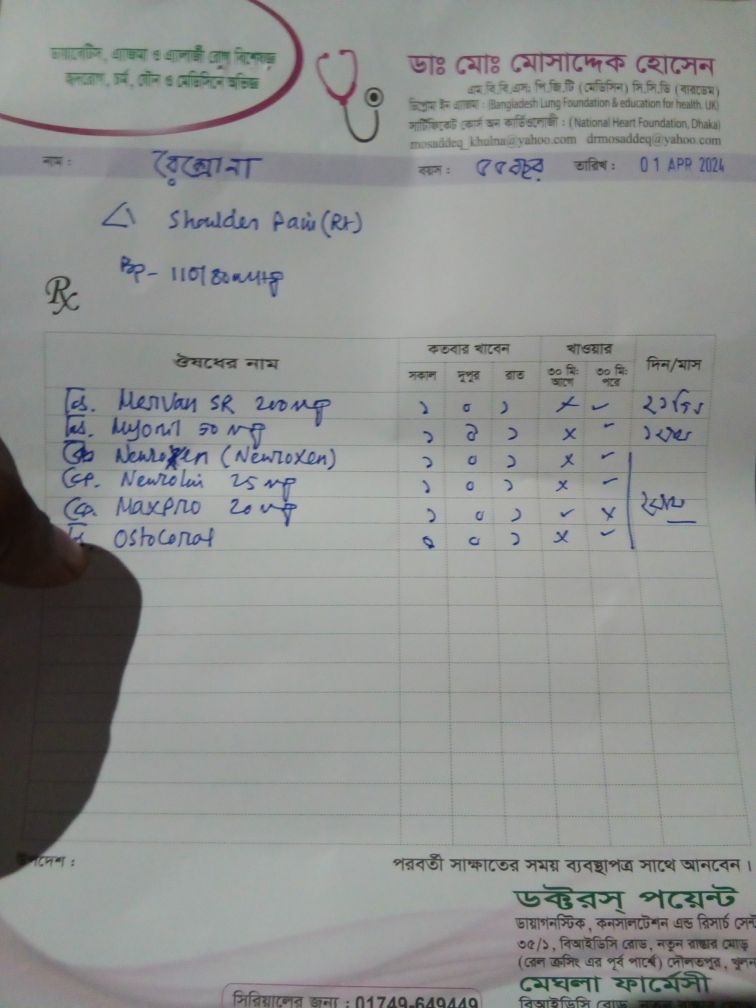 ডায়াবেটিস, এ্যাজমা ও এলার্জী রোগ বিশেষজ্ঞ
হৃদরোগ, চর্ম, যৌন ও মেডিসিনে অভিজ্ঞ
ডাঃ মোঃ মোসাদ্দেক হোসেন
এম.বি.বি.এস; পি.জি.টি (মেডিসিন) সি.সি.ডি (বারডেম)
ডিপ্লোমা ইন এ্যাজমা : (Bangladesh Lung Foundation & education for health, UK)
সার্টিফিকেট কোর্স অন কার্ডিওলোজী : (National Heart Foundation, Dhaka)
mosaddeq_khulna@yahoo.com drmosaddeq@yahoo.com
নাম : বয়স : ৫৫ বছর তারিখ : 01 APR 2024
Shoulder Pain (Rt)
Bp - 110/80 mmHg
Rx
ঔষধের নাম কতবার খাবেন খাওয়ার দিন/মাস
সকাল দুপুর রাত ৩০ মি: আগে ৩০ মি: পরে
Tab. Mervan SR 200 mg ১ ০ ১ × ✓
Tab. Myonil 50 mg ১ ০ ১ × ✓
Neuroxen (Neuroxen) ১ ০ ১ × ✓
Cap. Neurolin 25 mg ১ ০ ১ × ✓
Cap. Maxpro 20 mg ১ ০ ১ ✓ ×
Ostocoral ০ ০ ১ × ✓
উপদেশ : পরবর্তী সাক্ষাতের সময় ব্যবস্থাপত্র সাথে আনবেন।
ডক্টরস্ পয়েন্ট
ডায়াগনস্টিক, কনসালটেশন এন্ড রিসার্চ
৩৫/১, বিআইডিসি রোড, নতুন রাস্তার মোড়
(রেল ক্রসিং এর পূর্ব পার্শ্বে) দৌলতপুর,
মেঘলা ফার্মেসী
সিরিয়ালের জন্য : 01749-649449
বিআইডিসি রোড